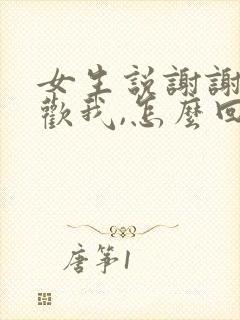 女生説謝謝
歡我,怎麼回
唐筝1